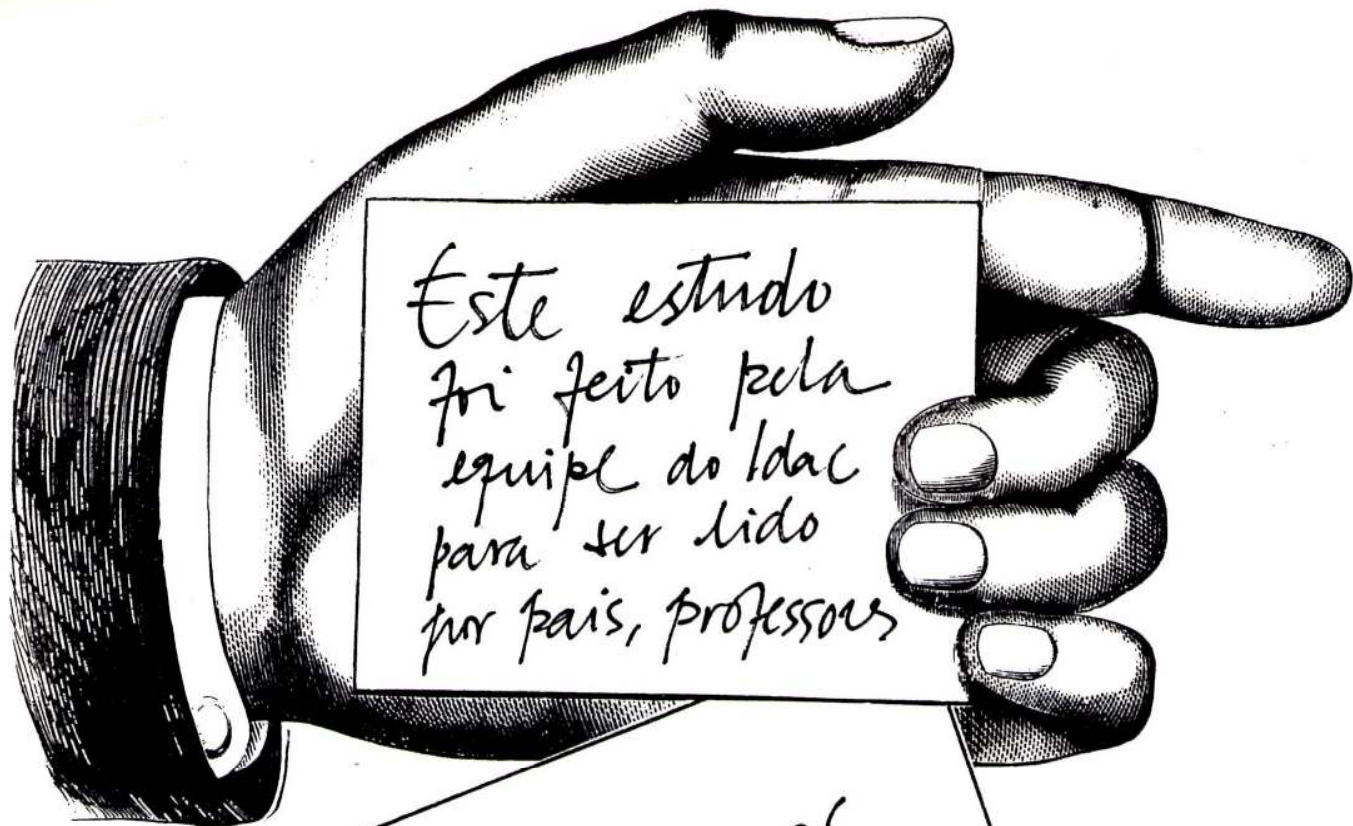 Este estudo
foi feito pela
equipe do Idac
para ser lido
por pais, professores